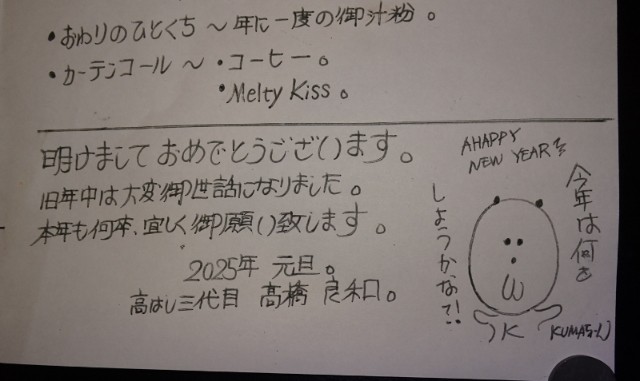 ・おわりのひとくち 〜 年に一度の御汁粉。
・カーテンコール 〜 ・コーヒー。
・Melty Kiss。
明けましておめでとうございます。
旧年中は大変御世話になりました。
本年も何卒、宜しく御願い致します。
2025年 元旦。
高はし三代目 髙橋 良和。
AHAPPY
NEW YEAR
今年は何を
しようかなて!!
K